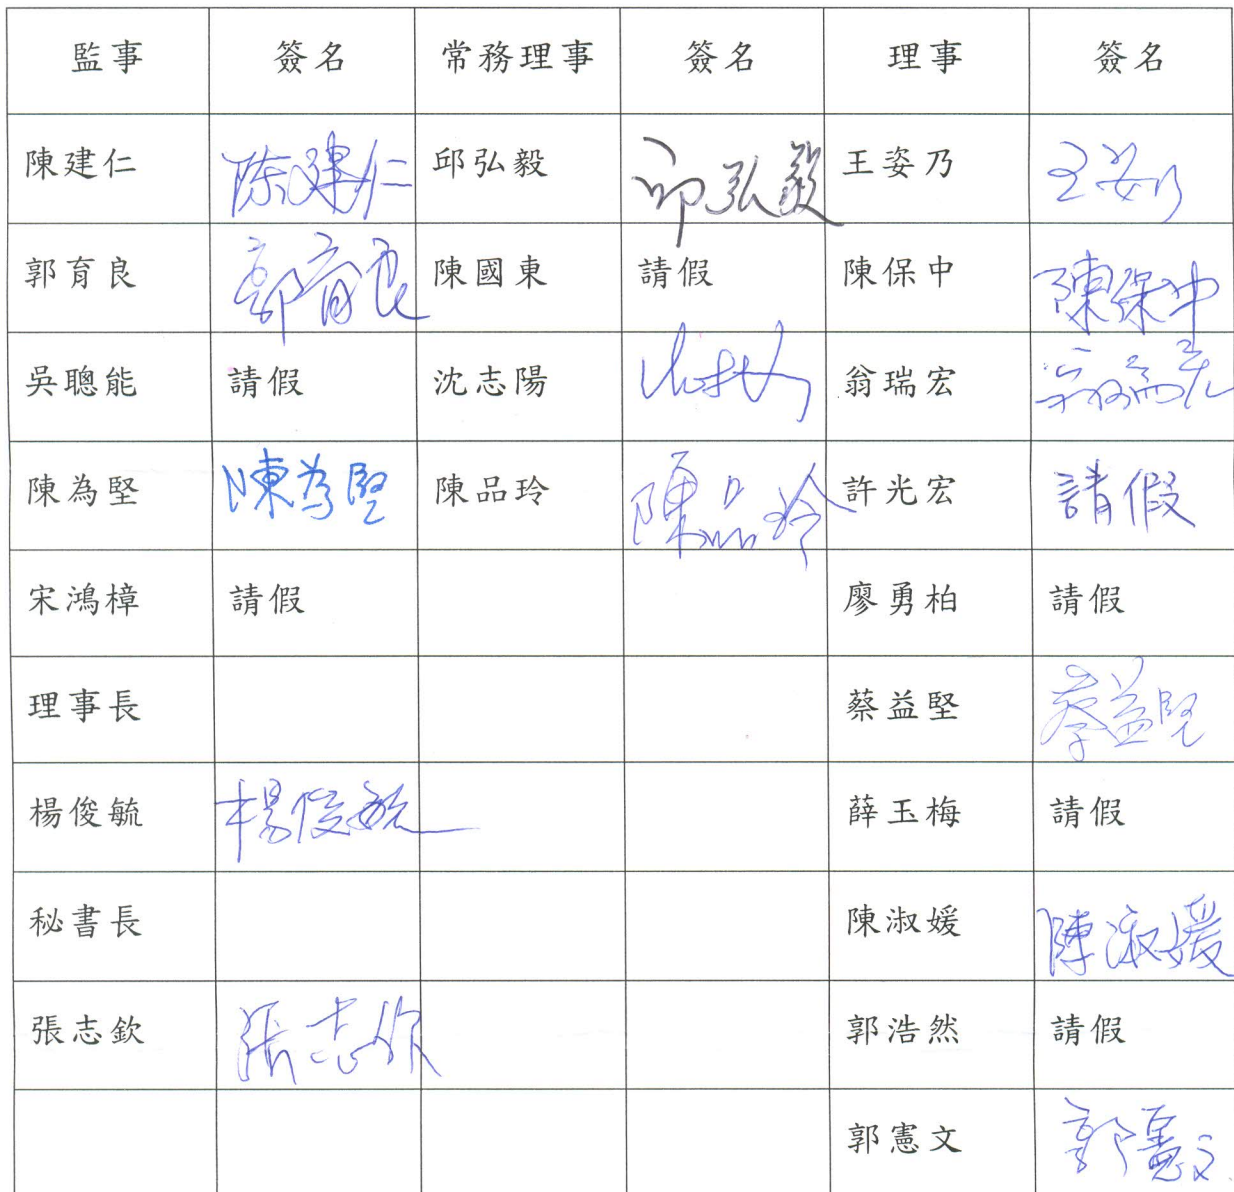 監事 簽名 常務理事 簽名 理事 簽名
陳建仁 陈建仁 邱弘毅 邱弘毅 王姿乃 王姿乃
郭育良 郭育良 陳國東 請假 陳保中 陳保中
吳聰能 請假 沈志陽 翁瑞宏
陳為堅 陳為堅 陳品玲 陳品玲 許光宏 請假
宋鴻樟 請假 廖勇柏 請假
理事長 蔡益堅 蔡益堅
楊俊毓 楊俊毓 薛玉梅 請假
秘書長 陳淑媛 陳淑媛
張志欽 張志欽 郭浩然 請假
郭憲文 郭憲文